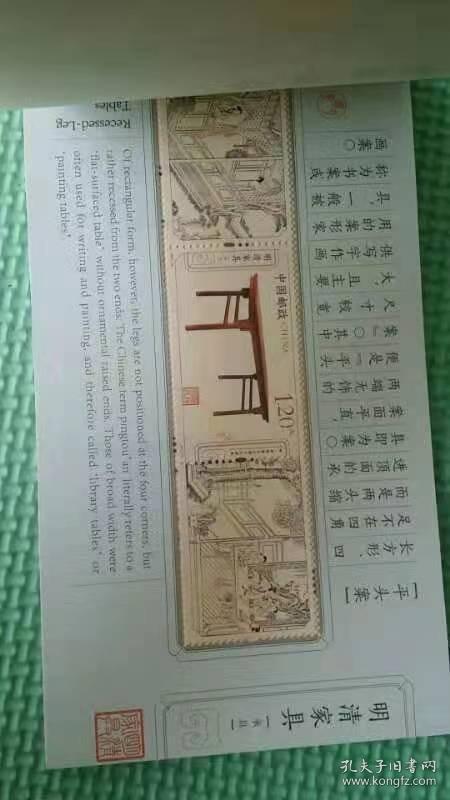 明清家具
承具
平头案
长方形、四
足不在四角
而是两头缩
进顶面的承
具即为案。
案面平直，
两端无饰的
便是『平头
案』。其中
尺寸较宽
大，且主要
供写字作画
用的案形家
具，一般被
称为书案或
画案。
明清家具
中国邮政 CHINA
120
Recessed-Leg
Tables
Of rectangular form, however, the legs are not positioned at the four corners, but
rather recessed from the two ends. The Chinese term pingtou'an literally refers to a
'flat-surfaced table' without ornamental raised ends. Those of broad width were
often used for writing and painting, and therefore called 'library tables' or
'painting tables'.
孔夫子旧书网
www.kongfz.com